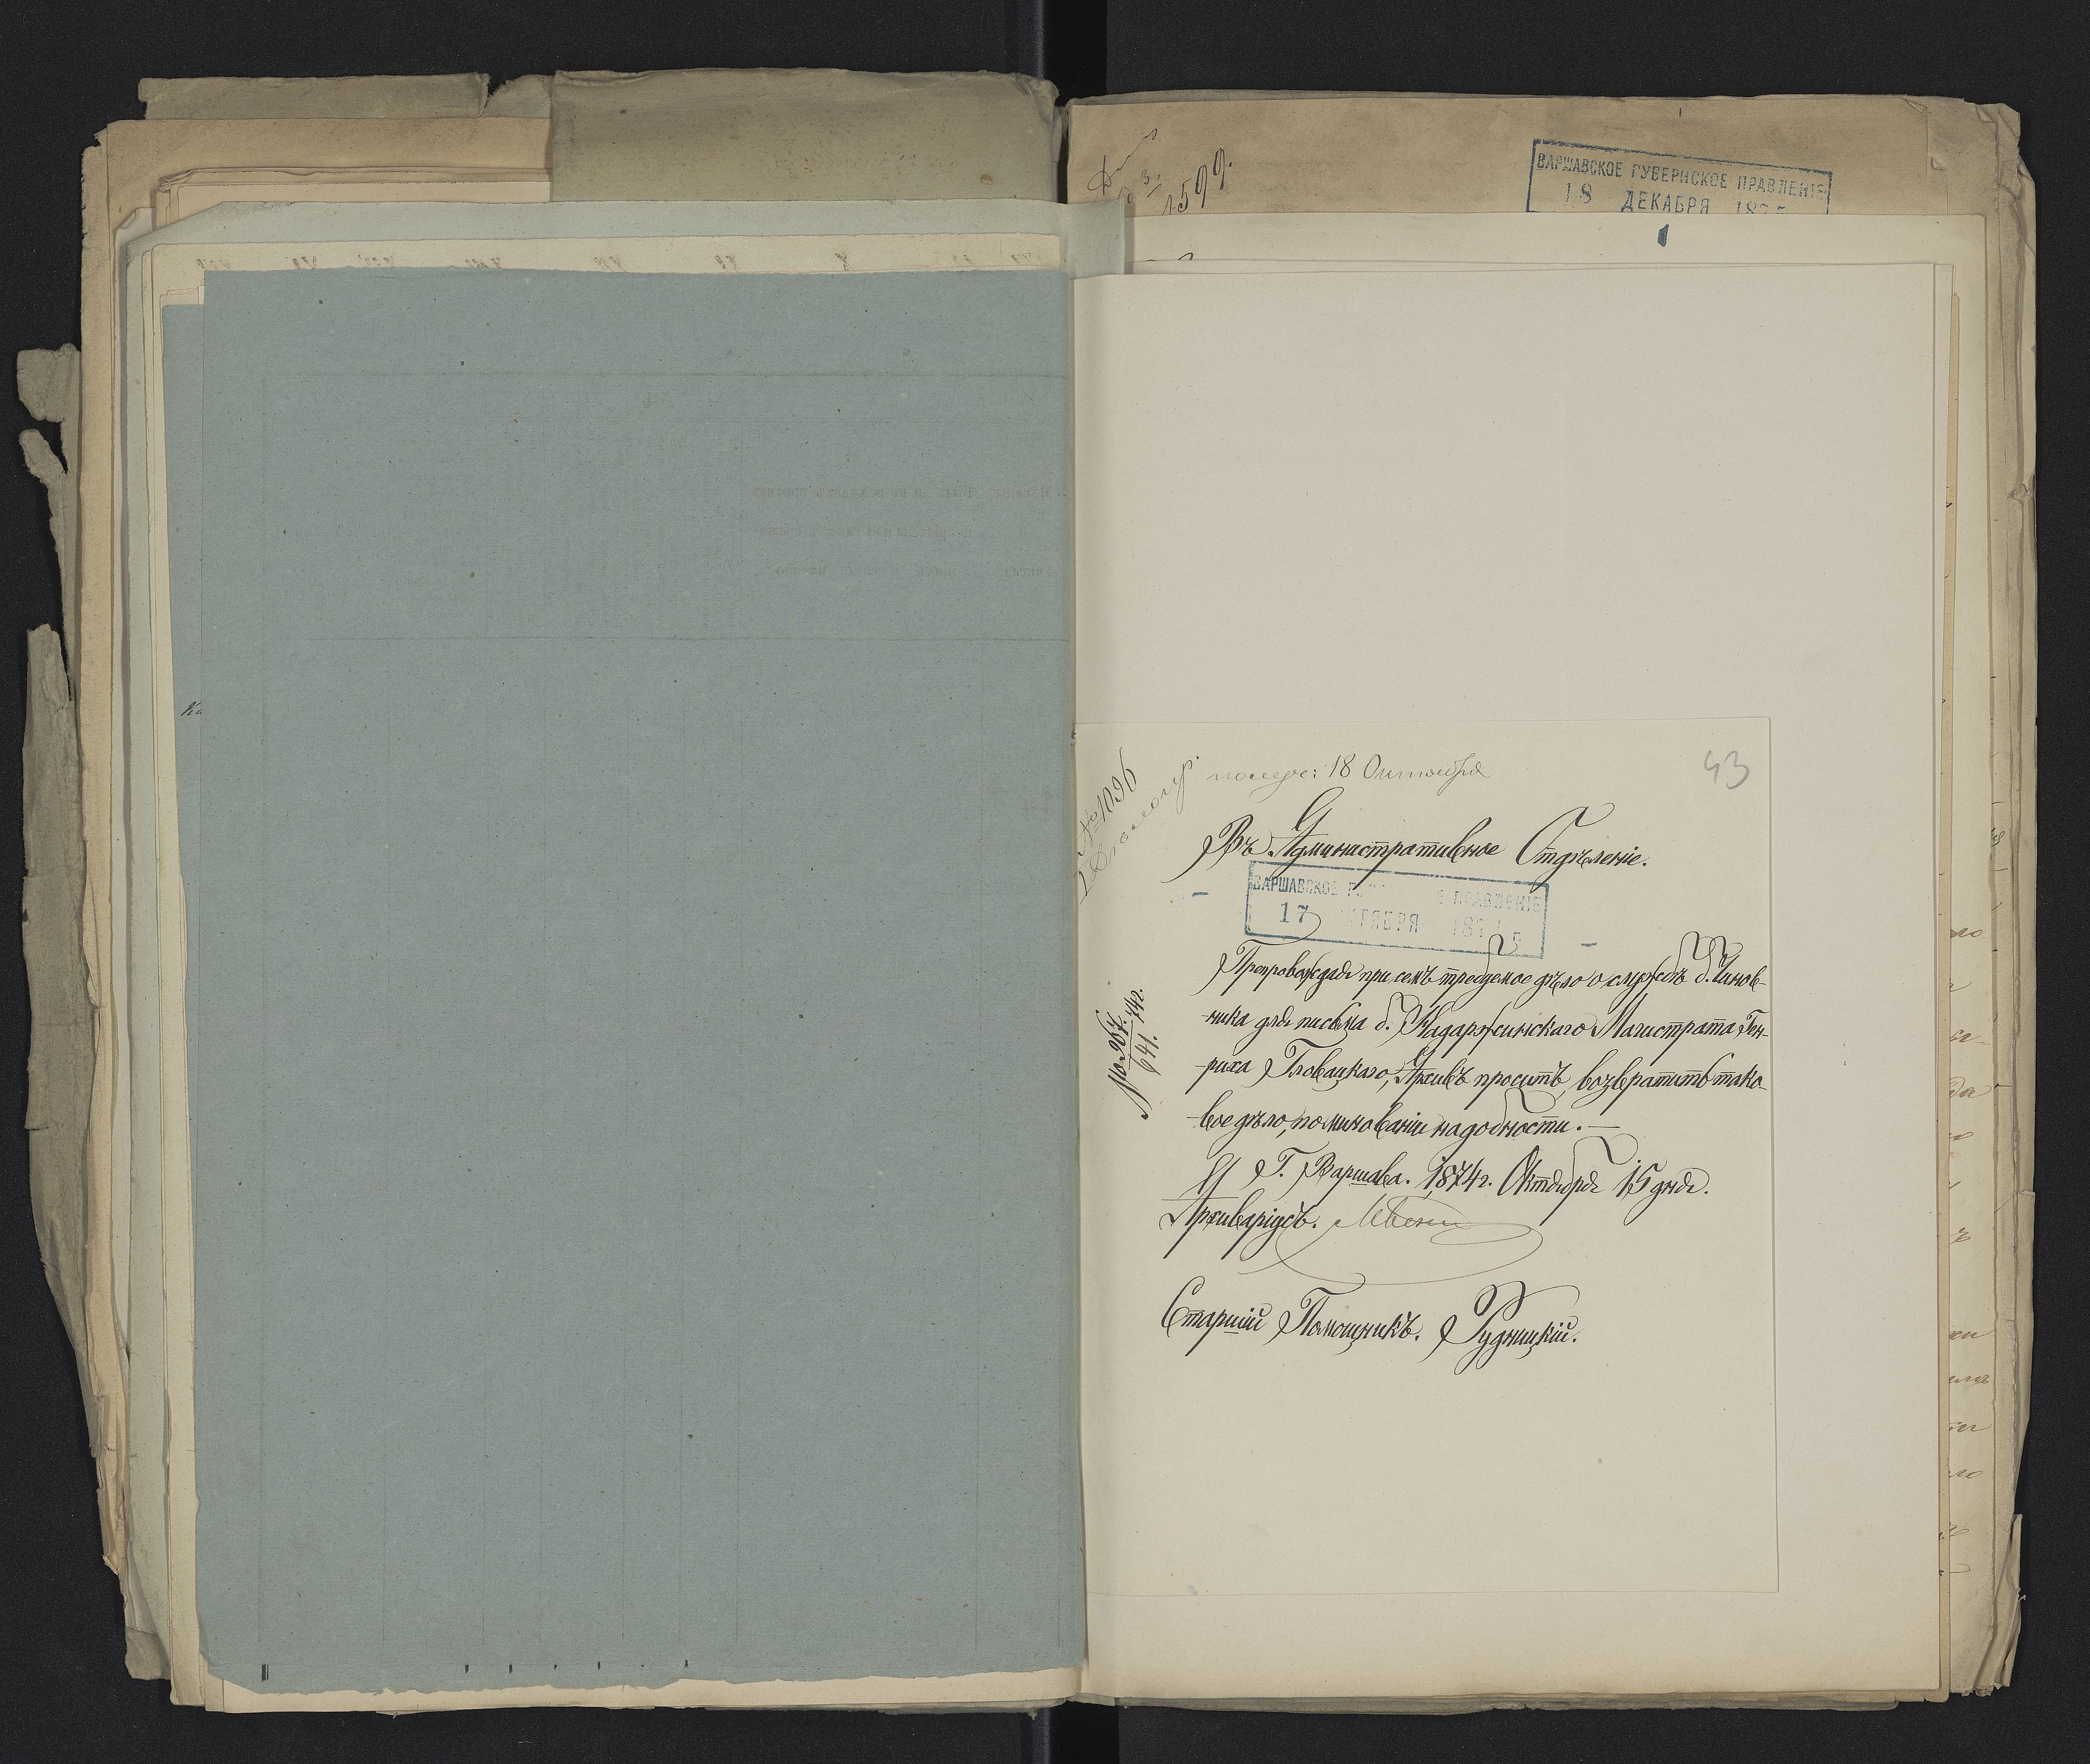 1599.
ВАРШАВСКОЕ ГУБЕРНСКОЕ ПРАВЛЕНІЕ
18 ДЕКАБРЯ 187
№ 1096
18 Октября
43
Въ Административное Отдѣленіе.
ВАРШАВСКОЕ ПРАВЛЕНІЕ
17 ОКТЯБРЯ
№ 967. 74г.
641.
Препровождая при семъ требуемое дѣло о службѣ б. Чинов-
-ника для письма б. Надаржинскаго Магистрата Ген-
-риха Гловацкаго, Архивъ проситъ, возвратить тако-
-вое дѣло, по минованіи надобности. —
Г. Варшава. 1874г. Октября 15 дня.
Архиваріусъ.
Старшій Помощникъ. Рудницкій.